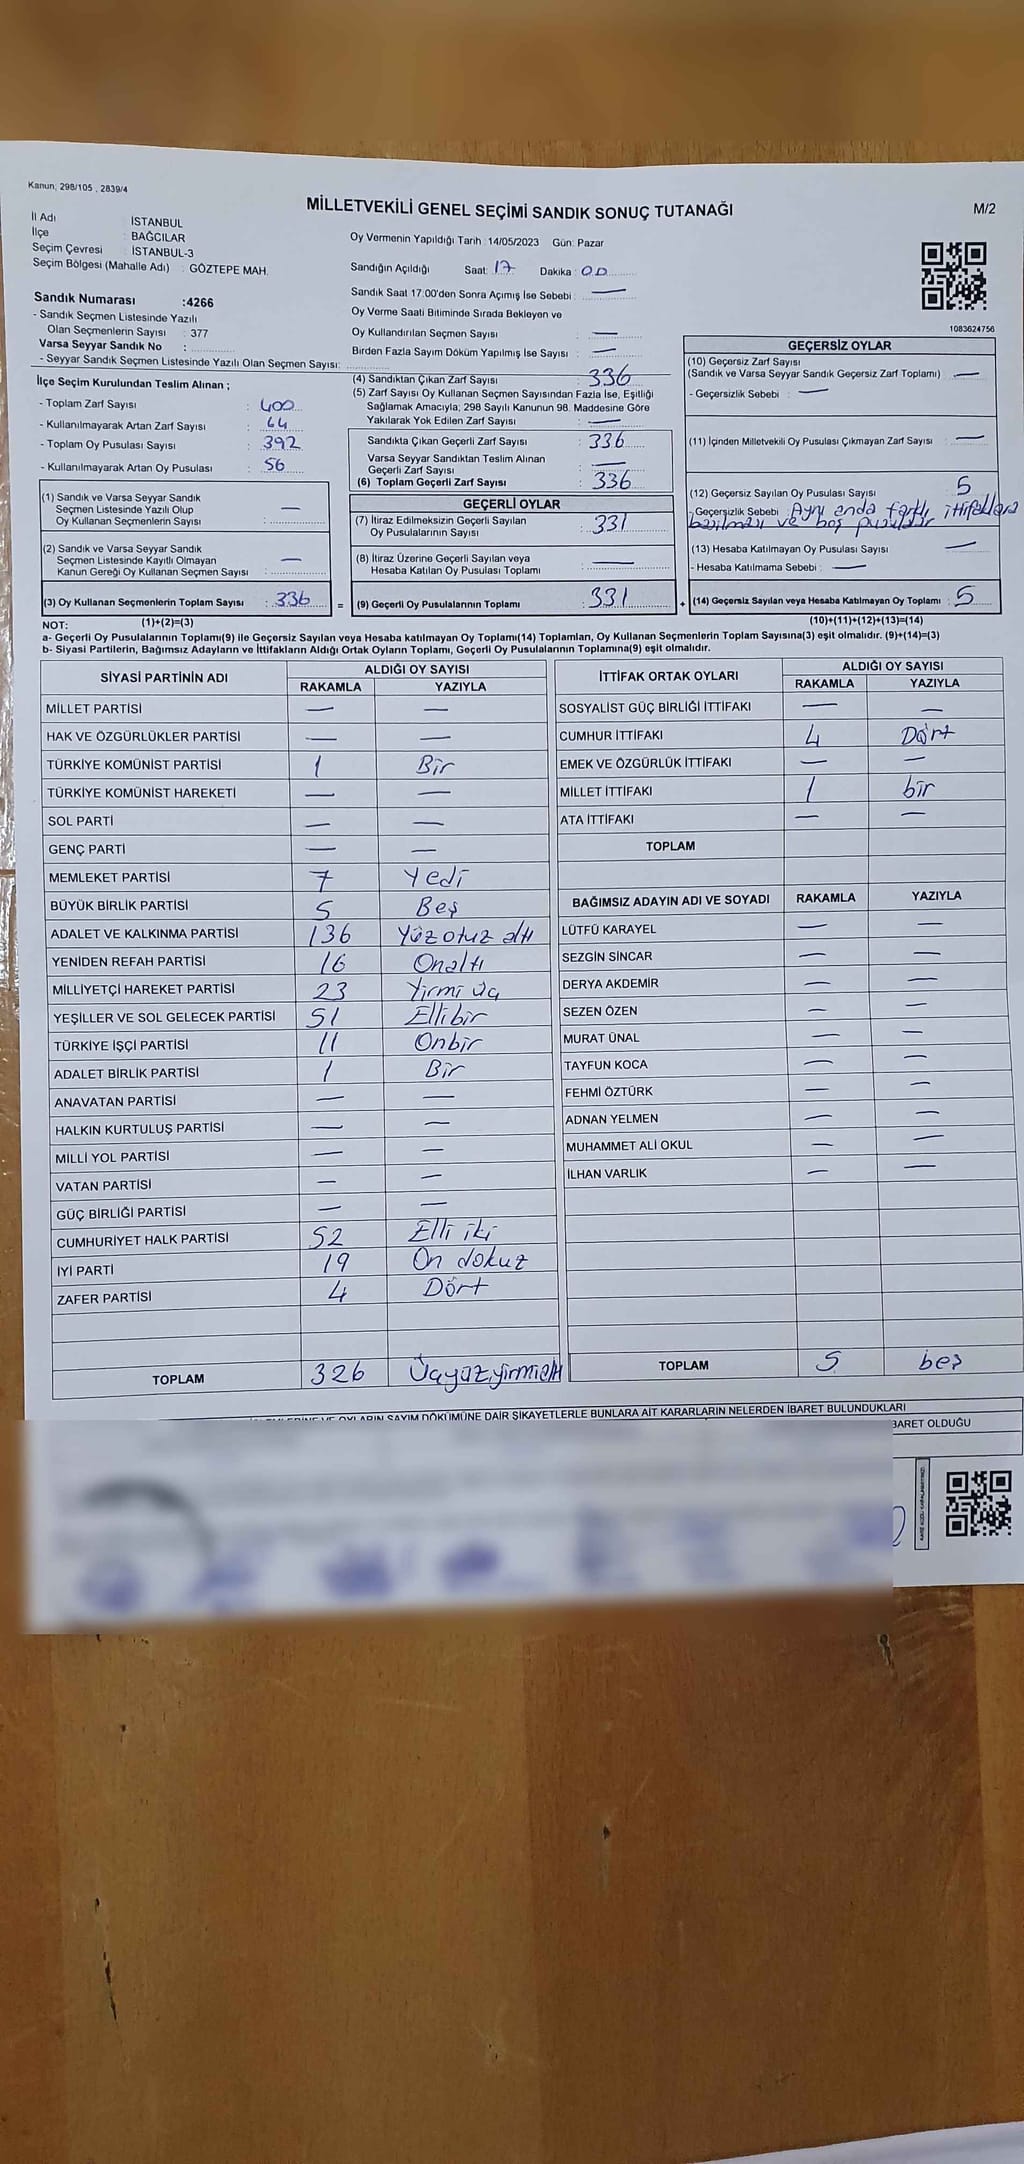 Kanun; 298/105 , 2839/4
MİLLETVEKİLİ GENEL SEÇİMİ SANDIK SONUÇ TUTANAĞI
M/2
İl Adı İSTANBUL
İlçe : BAĞCILAR
Seçim Çevresi : İSTANBUL-3
Seçim Bölgesi (Mahalle Adı) : GÖZTEPE MAH.
Sandık Numarası :4266
- Sandık Seçmen Listesinde Yazılı
Olan Seçmenlerin Sayısı : 377
Varsa Seyyar Sandık No :
- Seyyar Sandık Seçmen Listesinde Yazılı Olan Seçmen Sayısı:
Oy Vermenin Yapıldığı Tarih :14/05/2023 Gün: Pazar
Sandığın Açıldığı Saat: 17 Dakika : 00
Sandık Saat 17:00'den Sonra Açımış İse Sebebi : —
Oy Verme Saati Bitiminde Sırada Bekleyen ve
Oy Kullandırılan Seçmen Sayısı : —
Birden Fazla Sayım Döküm Yapılmış İse Sayısı : —
1083624756
İlçe Seçim Kurulundan Teslim Alınan ;
- Toplam Zarf Sayısı : 400
- Kullanılmayarak Artan Zarf Sayısı : 64
- Toplam Oy Pusulası Sayısı : 392
- Kullanılmayarak Artan Oy Pusulası : 56
(1) Sandık ve Varsa Seyyar Sandık
Seçmen Listesinde Yazılı Olup
Oy Kullanan Seçmenlerin Sayısı : —
(2) Sandık ve Varsa Seyyar Sandık
Seçmen Listesinde Kayıtlı Olmayan
Kanun Gereği Oy Kullanan Seçmen Sayısı : —
(3) Oy Kullanan Seçmenlerin Toplam Sayısı : 336
(4) Sandıktan Çıkan Zarf Sayısı : 336
(5) Zarf Sayısı Oy Kullanan Seçmen Sayısından Fazla İse, Eşitliği
Sağlamak Amacıyla; 298 Sayılı Kanunun 98. Maddesine Göre
Yakılarak Yok Edilen Zarf Sayısı : —
Sandıkta Çıkan Geçerli Zarf Sayısı : 336
Varsa Seyyar Sandıktan Teslim Alınan
Geçerli Zarf Sayısı : —
(6) Toplam Geçerli Zarf Sayısı : 336
GEÇERLİ OYLAR
(7) İtiraz Edilmeksizin Geçerli Sayılan
Oy Pusulalarının Sayısı : 331
(8) İtiraz Üzerine Geçerli Sayılan veya
Hesaba Katılan Oy Pusulası Toplamı : —
= (9) Geçerli Oy Pusulalarının Toplamı : 331
GEÇERSİZ OYLAR
(10) Geçersiz Zarf Sayısı
(Sandık ve Varsa Seyyar Sandık Geçersiz Zarf Toplamı) : —
- Geçersizlik Sebebi : —
(11) İçinden Milletvekili Oy Pusulası Çıkmayan Zarf Sayısı : —
(12) Geçersiz Sayılan Oy Pusulası Sayısı : 5
- Geçersizlik Sebebi : Aynı anda farklı ittifaklara
basılması ve boş pusulalar
(13) Hesaba Katılmayan Oy Pusulası Sayısı : —
- Hesaba Katılmama Sebebi : —
+ (14) Geçersiz Sayılan veya Hesaba Katılmayan Oy Toplamı : 5
NOT: (1)+(2)=(3) (10)+(11)+(12)+(13)=(14)
a- Geçerli Oy Pusulalarının Toplamı(9) ile Geçersiz Sayılan veya Hesaba katılmayan Oy Toplamı(14) Toplamları, Oy Kullanan Seçmenlerin Toplam Sayısına(3) eşit olmalıdır. (9)+(14)=(3)
b- Siyasi Partilerin, Bağımsız Adayların ve İttifakların Aldığı Ortak Oyların Toplamı, Geçerli Oy Pusulalarının Toplamına(9) eşit olmalıdır.
SİYASİ PARTİNİN ADI ALDIĞI OY SAYISI
RAKAMLA YAZIYLA
MİLLET PARTİSİ — —
HAK VE ÖZGÜRLÜKLER PARTİSİ — —
TÜRKİYE KOMÜNİST PARTİSİ 1 Bir
TÜRKİYE KOMÜNİST HAREKETİ — —
SOL PARTİ — —
GENÇ PARTİ — —
MEMLEKET PARTİSİ 7 Yedi
BÜYÜK BİRLİK PARTİSİ 5 Beş
ADALET VE KALKINMA PARTİSİ 136 Yüz otuz altı
YENİDEN REFAH PARTİSİ 16 Onaltı
MİLLİYETÇİ HAREKET PARTİSİ 23 Yirmi üç
YEŞİLLER VE SOL GELECEK PARTİSİ 51 Ellibir
TÜRKİYE İŞÇİ PARTİSİ 11 Onbir
ADALET BİRLİK PARTİSİ 1 Bir
ANAVATAN PARTİSİ — —
HALKIN KURTULUŞ PARTİSİ — —
MİLLİ YOL PARTİSİ — —
VATAN PARTİSİ — —
GÜÇ BİRLİĞİ PARTİSİ — —
CUMHURİYET HALK PARTİSİ 52 Elli iki
İYİ PARTİ 19 On dokuz
ZAFER PARTİSİ 4 Dört
TOPLAM 326 Üçyüzyirmialtı
İTTİFAK ORTAK OYLARI ALDIĞI OY SAYISI
RAKAMLA YAZIYLA
SOSYALİST GÜÇ BİRLİĞİ İTTİFAKI — —
CUMHUR İTTİFAKI 4 Dört
EMEK VE ÖZGÜRLÜK İTTİFAKI — —
MİLLET İTTİFAKI 1 bir
ATA İTTİFAKI — —
TOPLAM
BAĞIMSIZ ADAYIN ADI VE SOYADI RAKAMLA YAZIYLA
LÜTFÜ KARAYEL — —
SEZGİN SİNCAR — —
DERYA AKDEMİR — —
SEZEN ÖZEN — —
MURAT ÜNAL — —
TAYFUN KOCA — —
FEHMİ ÖZTÜRK — —
ADNAN YELMEN — —
MUHAMMET ALİ OKUL — —
İLHAN VARLIK — —
TOPLAM 5 beş
OYLARIN SAYIM DÖKÜMÜNE DAİR ŞİKAYETLERLE BUNLARA AİT KARARLARIN NELERDEN İBARET BULUNDUKLARI
OLDUĞU